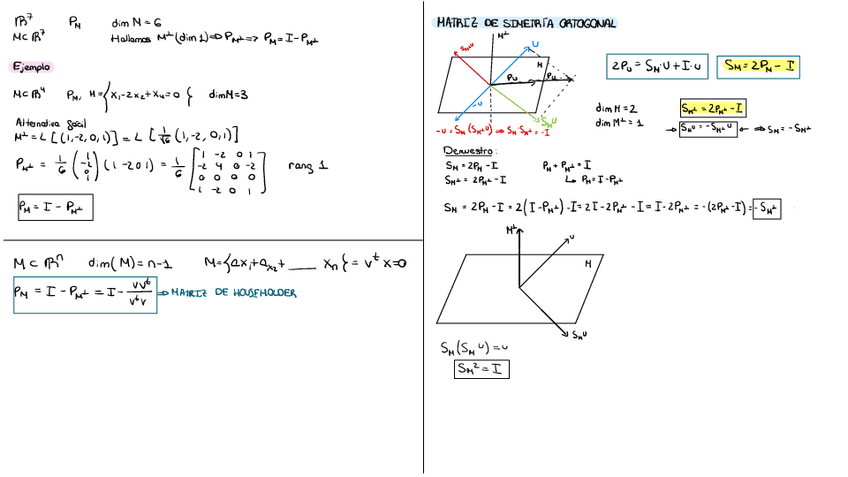 ℝ⁷ P_M dim M = 6
M ⊂ ℝ⁷ Hallamos M^⊥ (dim 1) ⇒ P_M^⊥ ⇒ P_M = I - P_M^⊥
Ejemplo
M ⊂ ℝ⁴ P_M, M = { x₁ - 2x₂ + x₄ = 0 } dim M = 3
Alternativa fácil
M^⊥ = L [(1, -2, 0, 1)] = L [1/√6 (1, -2, 0, 1)]
P_M^⊥ = 1/6 (1 -2 0 1) (1 -2 0 1) = 1/6 [ 1 -2 0 1
-2 4 0 -2
0 0 0 0
1 -2 0 1 ] rang 1
P_M = I - P_M^⊥
M ⊂ ℝⁿ dim(M) = n-1 M = {ax₁ + a_x₂ + ___ x_n} = v^t x = 0
P_M = I - P_M^⊥ = I - vv^t / v^t v ⇒ MATRIZ DE HOUSEHOLDER
MATRIZ DE SIMETRÍA ORTOGONAL
M^⊥
S_M^⊥ U
U
M
P_U
P_U
-U
S_M U
-U = S_M (S_M^⊥ U) ⇒ S_M · S_M^⊥ = -I
2P_U = S_M · U + I · U
S_M = 2P_M - I
dim M = 2
dim M^⊥ = 1
S_M^⊥ = 2P_M^⊥ - I
→ S_M U = -S_M^⊥ U ← ⇒ S_M = -S_M^⊥
Demuestro:
S_M = 2P_M - I P_M + P_M^⊥ = I
S_M^⊥ = 2P_M^⊥ - I ↳ P_M = I - P_M^⊥
S_M = 2P_M - I = 2(I - P_M^⊥) - I = 2I - 2P_M^⊥ - I = I - 2P_M^⊥ = -(2P_M^⊥ - I) = -S_M^⊥
M^⊥
U
M
S_M U
S_M (S_M U) = U
S_M² = I